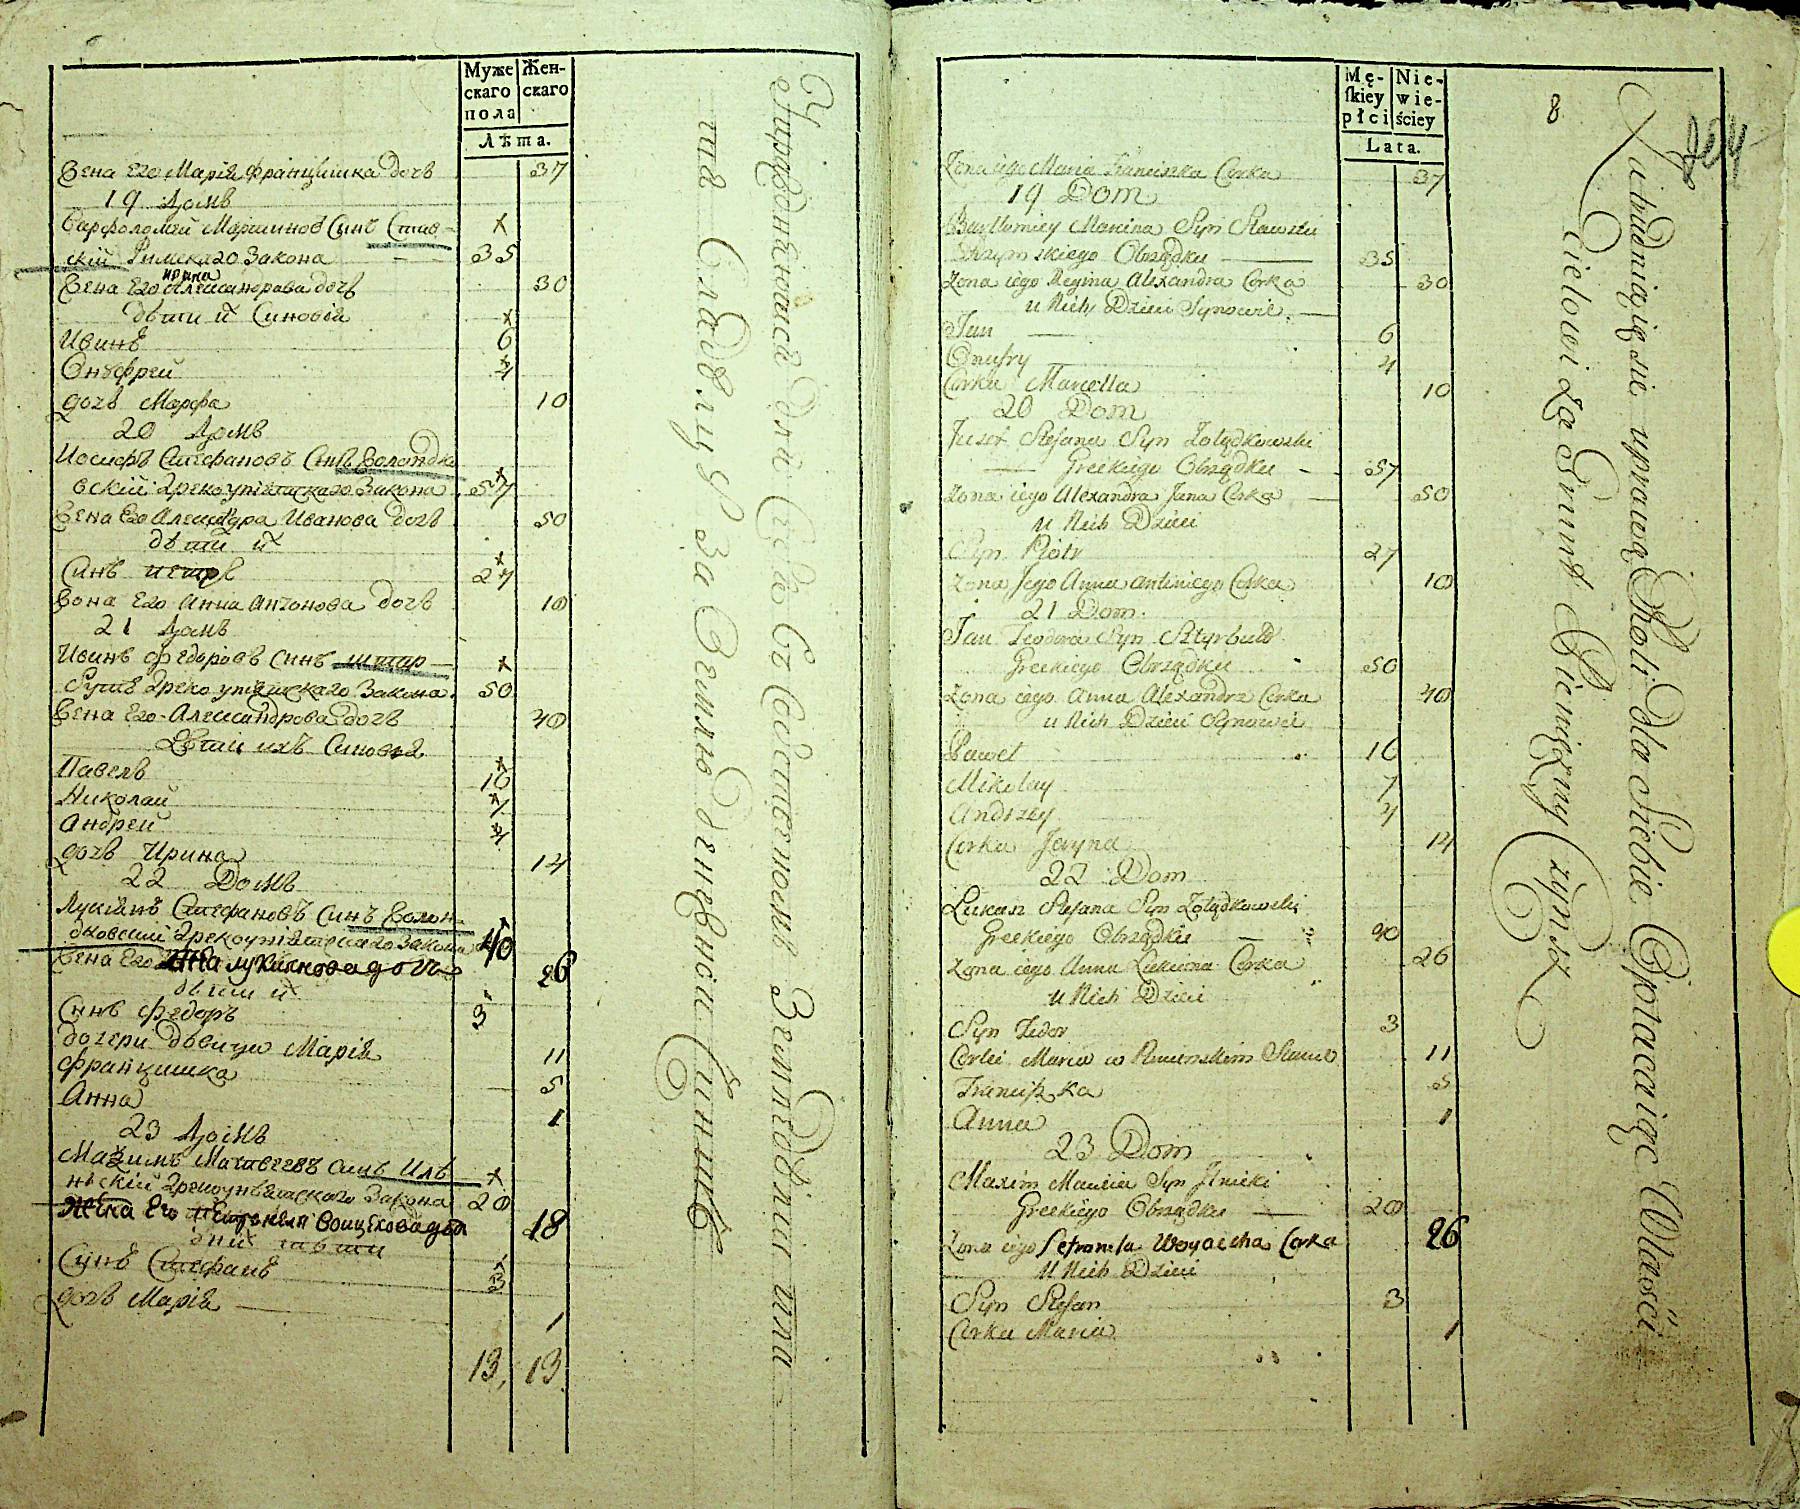 Муже Жен-
скаго скаго
пола
Лѣта.
Жена Его Марія Францишка дочь 37
19 Домъ
Варфоломей Мартиновъ Синъ Став- x
скій Римскаго Закона 35
ирина
Жена Его Александрова дочь 30
дѣти их Синовія x
Иванъ 6
Онуфрей 4
дочь Марфа 10
20 Домъ
Іосифъ Стефановъ Синъ Жолондко
вскій Грекоунітскаго Закона 57
Жена Его Александра Иванова дочь 50
дѣти их
Синъ петръ 27
Жона Его Анна Антонова дочь 10
21 Домъ
Иванъ Федоровъ Синъ штир x
Грекоунітскаго Закона 50
Жена Его Александрова дочь 40
Дѣти ихъ Синовія
Павелъ 16
Николай 7
Андрей 4
дочь Ирина 14
22 Домъ
Лукіянъ Стефановъ Синъ Жолон-
дковскій Грекоунітскаго Закона 40
Жена Его Анна лукянова дочь 26
дѣти их
Синъ Федоръ 3
дочери дѣвицы Марія 11
Францишка 5
Анна 1
23 Домъ
Мазимъ Матвеевъ синъ Иль x
нѣскій Грекоунѣятскаго Закона 20
жена Его петронеля воицехова доч 18
дѣти
Сунъ Стефанъ 3
дочь Марія 1
13, 13
Упражненяюсѧ для Себя Собственнымъ Земледѣліи или
та Славлцу За Землю денежній Чиншъ
8
Mę- Nie-
skiey wie-
płci ściey
Lata.
Zona iego Maria Franciszka Corka 37
19 Dom
Bartłomiey Marcina Syn Stawski
Rzymskiego Obrządku 35
Zona iego Regina Alexandra Corka 30
u Nich Dzieci Synowie
Jan 6
Onufry 4
Corka Marcella 10
20 Dom
Jozef Stefana Syn Zołądkowski
Greckiego Obrządku 57
Zona iego Alexandra Jana Corka 50
u Nich Dzieci
Syn Piotr 27
Zona Jego Anna Antoniego Corka 10
21 Dom
Jan Teodora Syn Sztyrbuł
Greckiego Obrządku 50
Zona iego Anna Alexandra Corka 40
u Nich Dzieci Synowie
Paweł 16
Mikołay 7
Andrzey 4
Corka Jeryna 14
22 Dom
Łukasz Stefana Syn Zołądkowski
Greckiego Obrządku 40
Zona iego Anna Łukiana Corka 26
u Nich Dzieci
Syn Fedor 3
Corki Maria w Panieńskim Stanie 11
Franciszka 5
Anna 1
23 Dom
Maxim Macieia Syn Jlnicki
Greckiego Obrządku 20
Zona iego Petronela Woyciecha Corka 26
U Nich Dzieci
Syn Stefan 3
Corka Maria 1
Zatrudniaiące się uprawą Roli dla Siebie Opłacaiąc Właści
Cielowi Za Grunt Pieniężny Czynsz